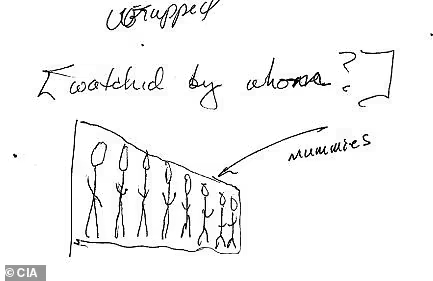 wrapped
[watched by whom?]
MUMMIES
© CIA